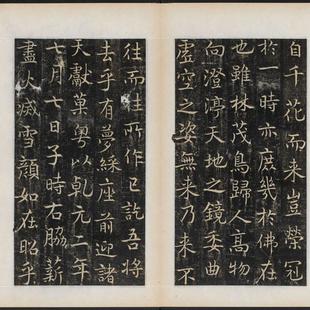 自千花而来豈荣冠
於一時亦庶幾於佛在
也雖林茂鳥歸人高物
向澄渟天地之鏡委曲
虛空之姿無来乃来不
往而往所作已訖吾將
去乎有夢綵座前迎諸
天獻菓粤以乹元二年
七月七日子時右脇薪
盡火滅雪顔如在昭乎